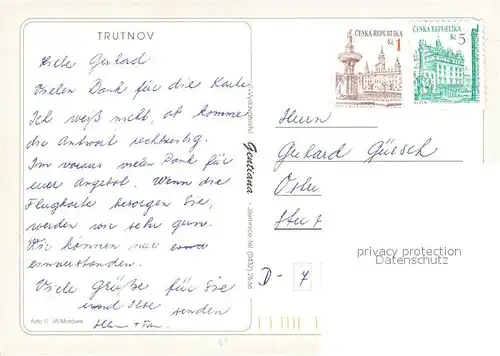 TRUTNOV
Viele Gerhard
Vielen Dank für die Karte
Ich weiß nicht, ob komme
die Antwort rechtzeitig.
Im voraus vielen Dank für
euer Angebot. Wenn die
Flugkarte besorgen Sie,
werden wir sehr gern.
Wir können nur
einverstanden.
Viele Grüße für Sie
und Ilse senden
Foto © Jiří Morávek
Gentiana
– Jilemnice, tel. (0432) 2666
ČESKÁ REPUBLIKA
Kč 1
ČESKÁ REPUBLIKA
Kč 5
Herrn
Gerhard
D - 7
privacy protection
Datenschutz